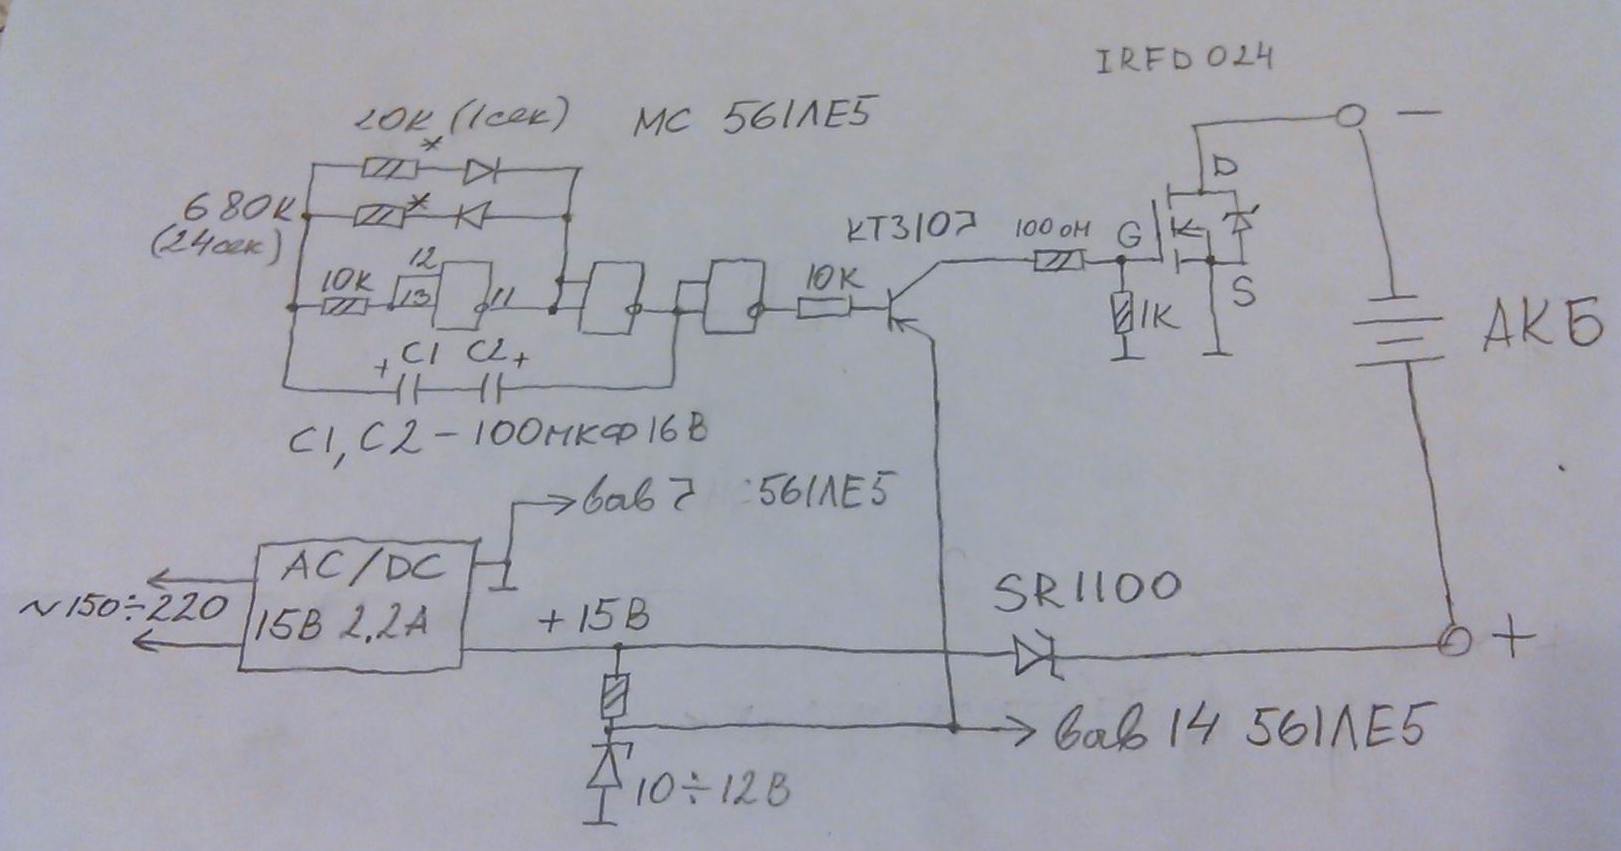 IRFD 024
20K (1сек) МС 561ЛЕ5
*
680К *
(24сек)
10К 12
13 11
10К
КТ3107
100 ом
G D
S
1К
АКБ
−
+ C1 C2 +
C1, C2 - 100мкФ 16В
вав 7 561ЛЕ5
AC/DC
15В 2,2А
~150÷220
+15В
SR1100
+
вав 14 561ЛЕ5
10÷12В